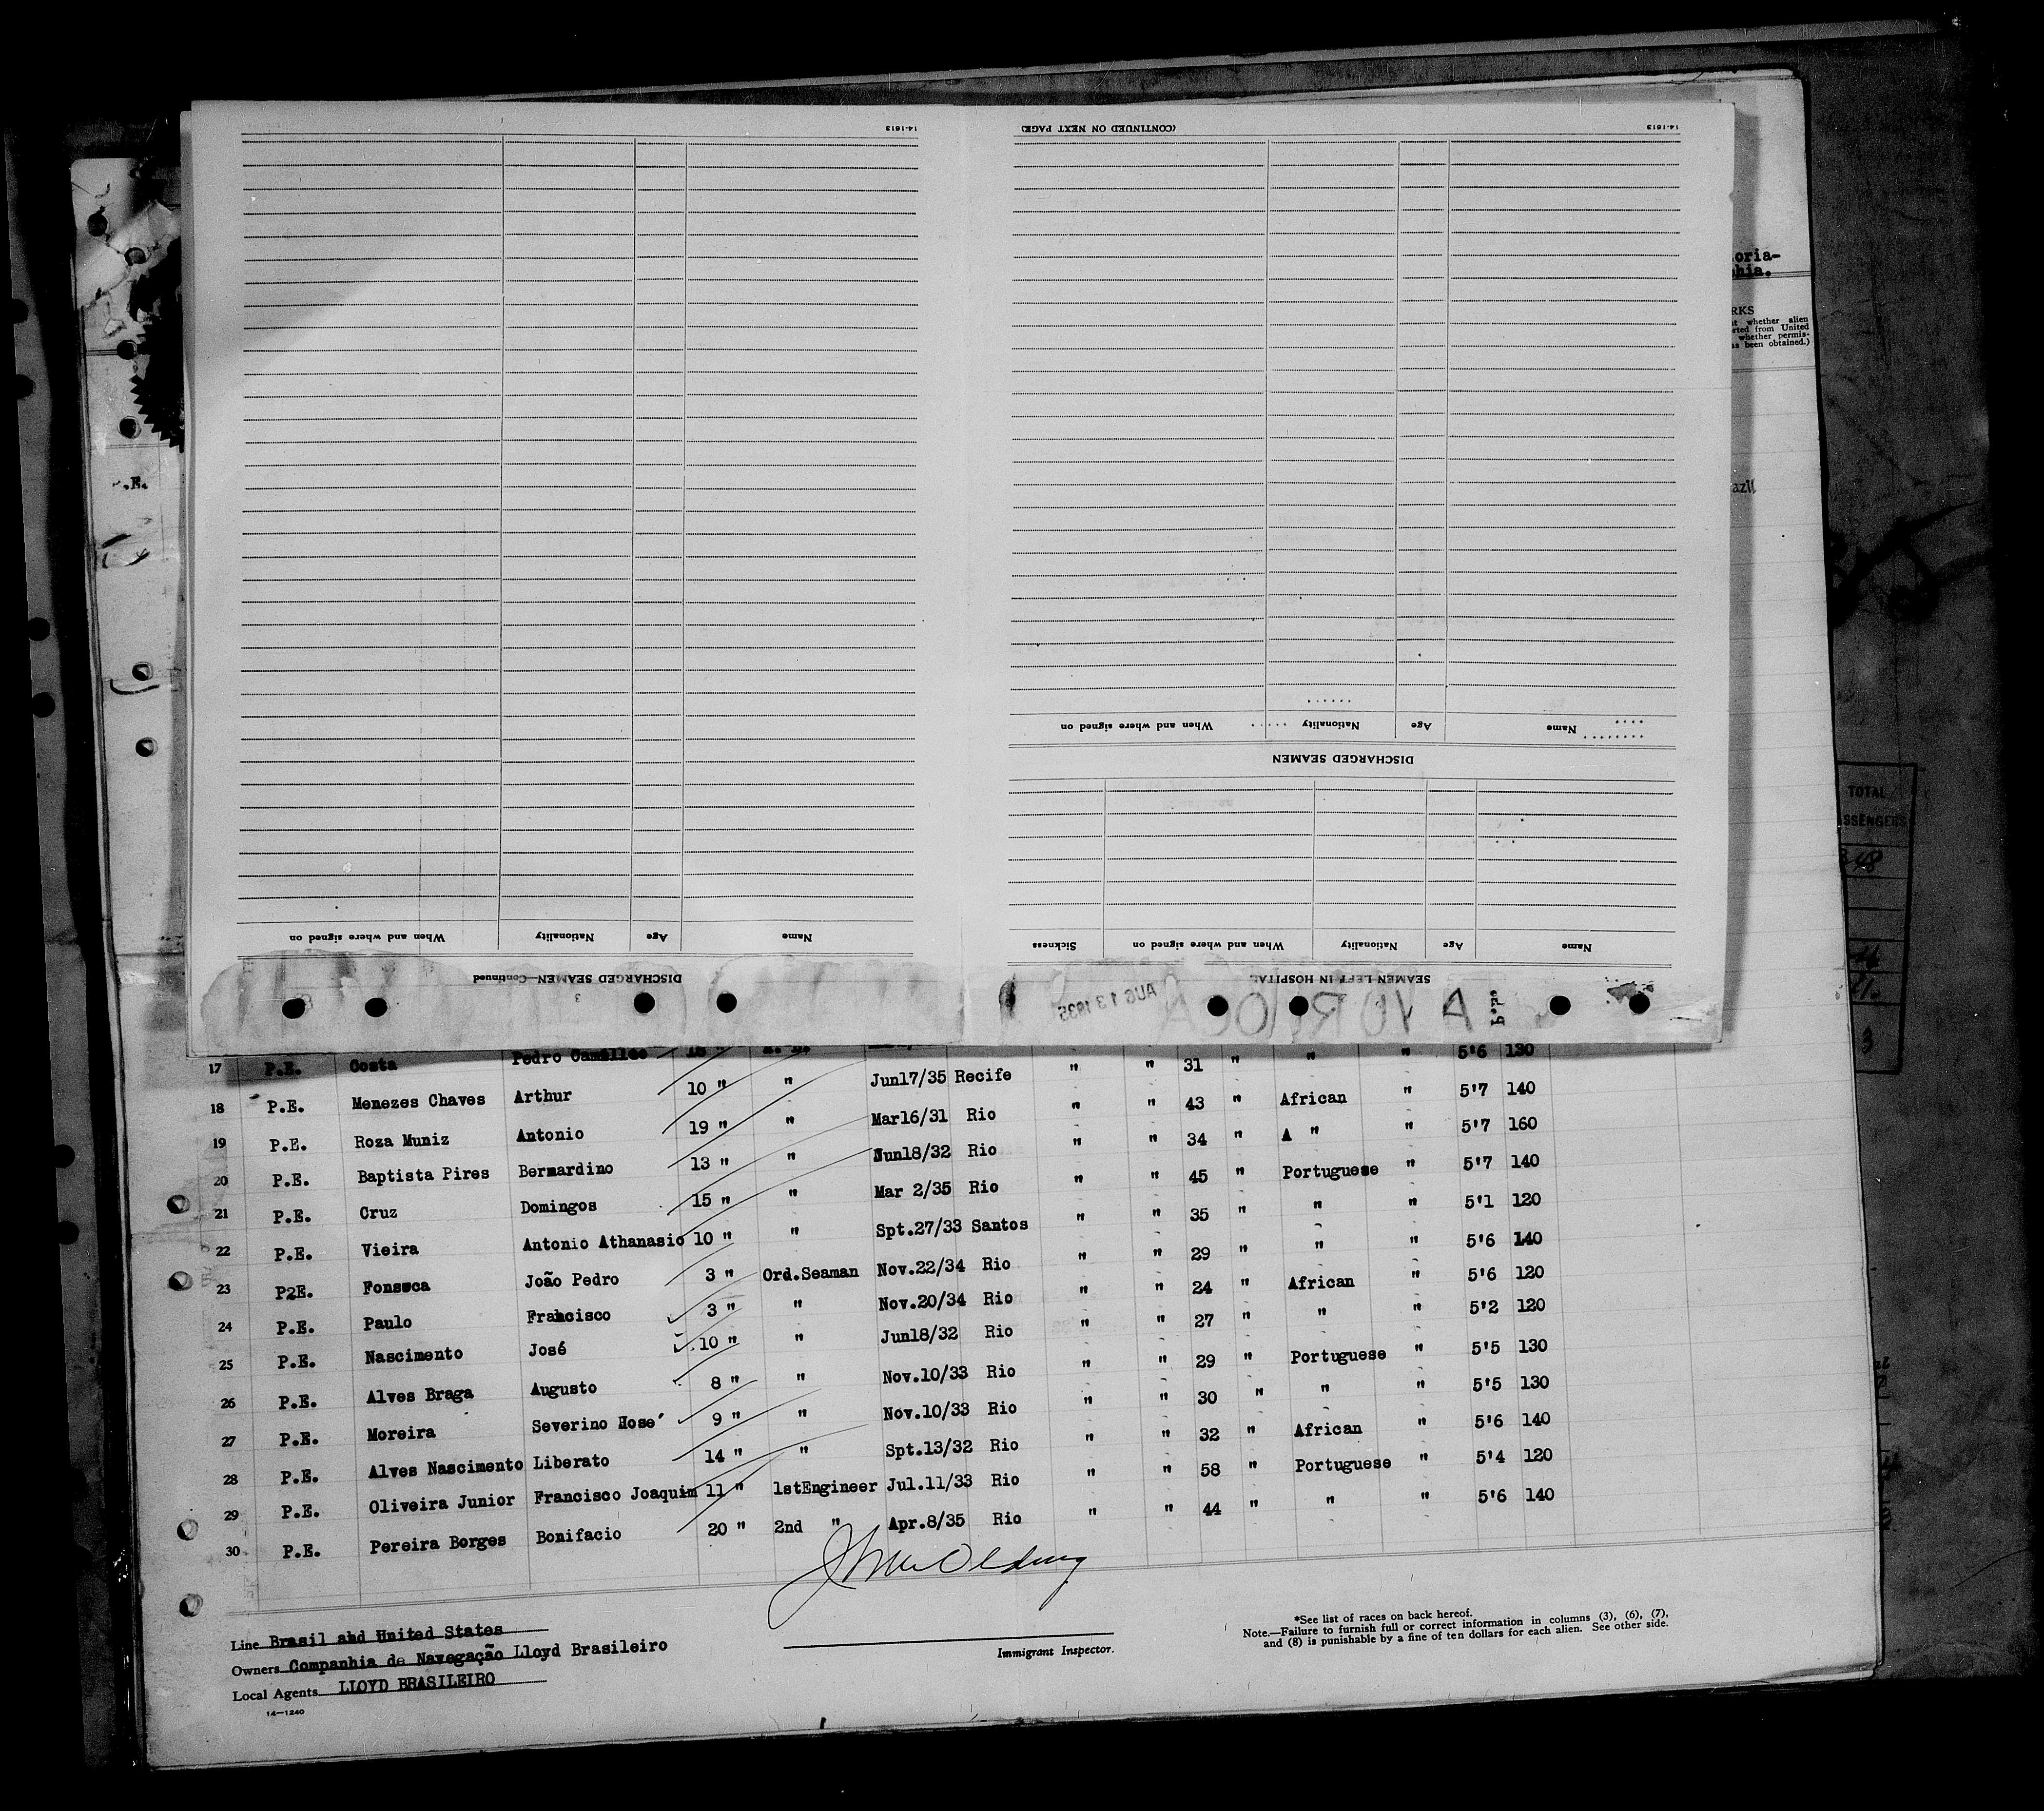 14-1613
(CONTINUED ON NEXT PAGE)
14-1613
When and where signed on Nationality Age Name
DISCHARGED SEAMEN
When and where signed on Nationality Age Name
DISCHARGED SEAMEN—Continued
3
Sickness When and where signed on Nationality Age Name
SEAMEN LEFT IN HOSPITAL
AUG 13 1935
oria-
hia.
RKS
whether alien
rted from United
whether permis-
s been obtained.)
.E.
azil
TOTAL
SSENGERS
17 P.E. Costa Pedro Camillo 15 "
18 P.E. Menezes Chaves Arthur 10 " " Jun17/35 Recife " " 31 " " " 5'6 130
19 P.E. Roza Muniz Antonio 19 " " Mar16/31 Rio " " 43 " African " 5'7 140
20 P.E. Baptista Pires Bernardino 13 " " Jun18/32 Rio " " 34 " A " " 5'7 160
21 P.E. Cruz Domingos 15 " " Mar 2/35 Rio " " 45 " Portuguese " 5'7 140
22 P.E. Vieira Antonio Athanasio 10 " " Spt.27/33 Santos " " 35 " " " 5'1 120
23 P2E. Fonseca João Pedro 3 " Ord.Seaman Nov.22/34 Rio " " 29 " " " 5'6 140
24 P.E. Paulo Francisco 3 " " Nov.20/34 Rio " " 24 " African " 5'6 120
25 P.E. Nascimento José 10 " " Jun18/32 Rio " " 27 " " " 5'2 120
26 P.E. Alves Braga Augusto 8 " " Nov.10/33 Rio " " 29 " Portuguese " 5'5 130
27 P.E. Moreira Severino Hose' 9 " " Nov.10/33 Rio " " 30 " " " 5'5 130
28 P.E. Alves Nascimento Liberato 14 " " Spt.13/32 Rio " " 32 " African " 5'6 140
29 P.E. Oliveira Junior Francisco Joaquim 11 " 1stEngineer Jul.11/33 Rio " " 58 " Portuguese " 5'4 120
30 P.E. Pereira Borges Bonifacio 20 " 2nd " Apr.8/35 Rio " " 44 " " " 5'6 140
Line Brasil and United States
Owners Companhia de Navegação Lloyd Brasileiro
Local Agents LLOYD BRASILEIRO
14—1240
Immigrant Inspector.
*See list of races on back hereof.
Note.—Failure to furnish full or correct information in columns (3), (6), (7),
and (8) is punishable by a fine of ten dollars for each alien. See other side.